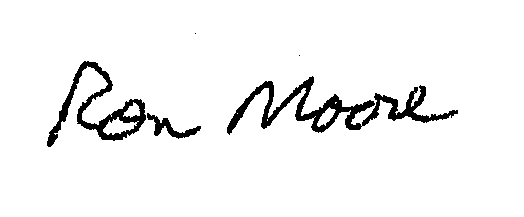 Ron Moore